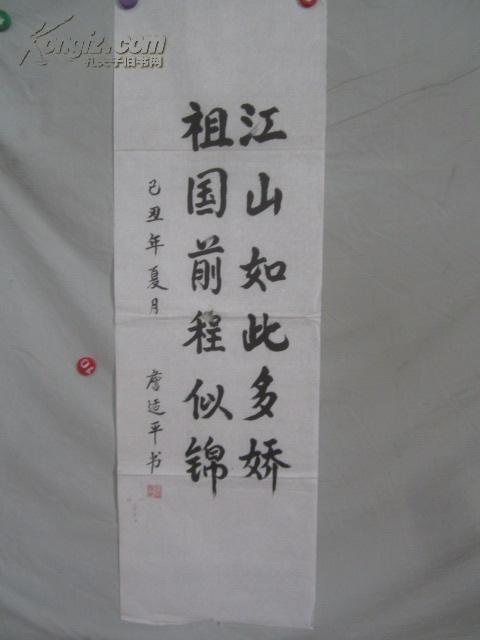 江山如此多娇
祖国前程似锦
己丑年夏月
詹适平书
Kongfz.com
孔夫子旧书网
10